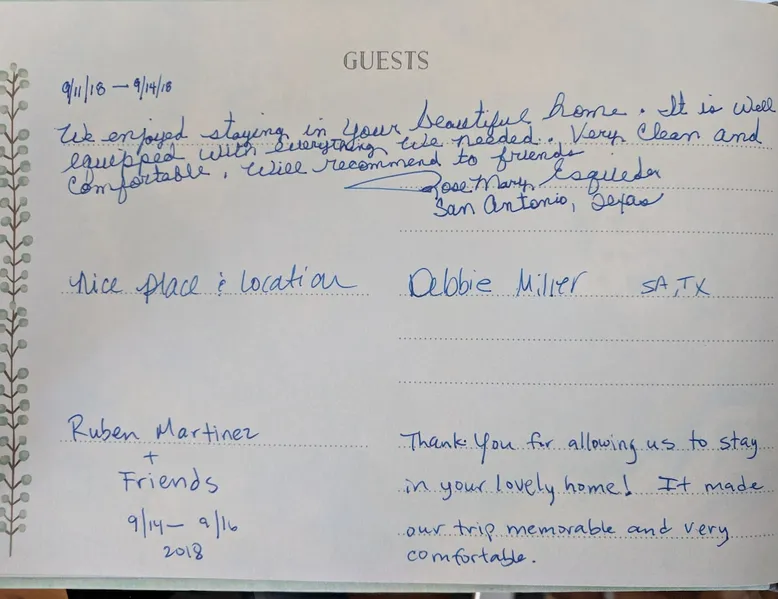 GUESTS
9/11/18 — 9/14/18
We enjoyed staying in your beautiful home. It is well
equipped with everything we needed. Very clean and
comfortable. Will recommend to friends
Rose Mary Esqueda
San Antonio, Texas
Nice place & location
Debbie Miller SA, TX
Ruben Martinez
+
Friends
9/14 — 9/16
2018
Thank You for allowing us to stay
in your lovely home! It made
our trip memorable and very
comfortable.